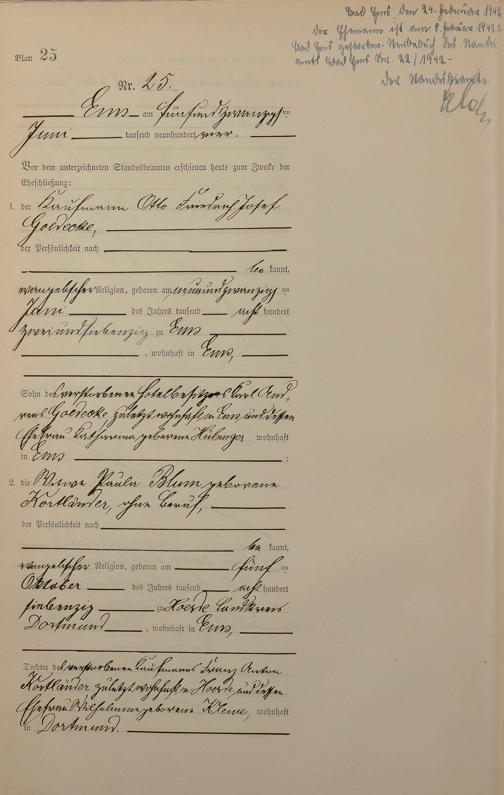 Bad Ems den 24. Februar 1942
der Ehemann ist am 8. Februar 1942 in
Bad Ems gestorben. Sterbebuch des Standes-
amts Bad Ems Nr. 22/1942.
Der Standesbeamte
Blatt 25
Nr. 25.
Ems am fünfundzwanzigsten
Juni tausend neunhundert vier.
Vor dem unterzeichneten Standesbeamten erschienen heute zum Zwecke der
Eheschließung:
1. der Kaufmann Otto Friedrich Josef
Goedecke,
der Persönlichkeit nach
be kannt,
evangelischer Religion, geboren am neunundzwanzigsten
Juni des Jahres tausend acht hundert
zweiundsiebenzig zu Ems
, wohnhaft in Ems,
Sohn des verstorbenen Hotelbesitzers Karl And-
reas Goedecke zuletzt wohnhaft in Ems und dessen
Ehefrau Katharina geborene Hübinger wohnhaft
in Ems ;
2. die Witwe Paula Blum geborene
Kortländer, ohne Beruf,
der Persönlichkeit nach
be kannt,
evangelischer Religion, geboren am fünf ten
Oktober des Jahres tausend acht hundert
siebenzig zu Hoerde Landkreis
Dortmund , wohnhaft in Ems,
Tochter des verstorbenen Kaufmanns Franz Anton
Kortländer zuletzt wohnhaft in Hoerde, und dessen
Ehefrau Wilhelmine geborene wohnhaft
in Dortmund.